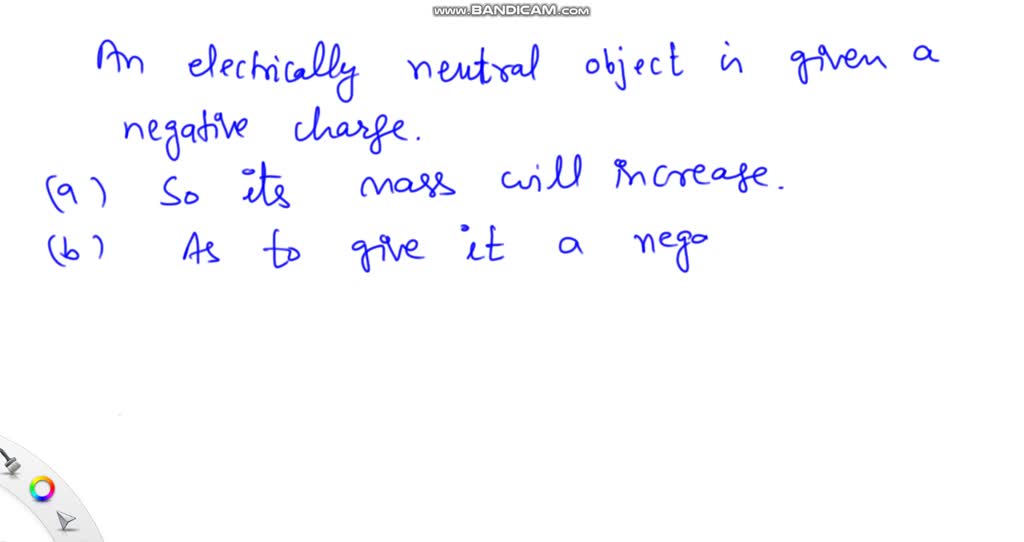 www.BANDICAM.com
An electrically neutral object is given a
negative charge.
(a) So its mass will increase.
(b) As to give it a nega